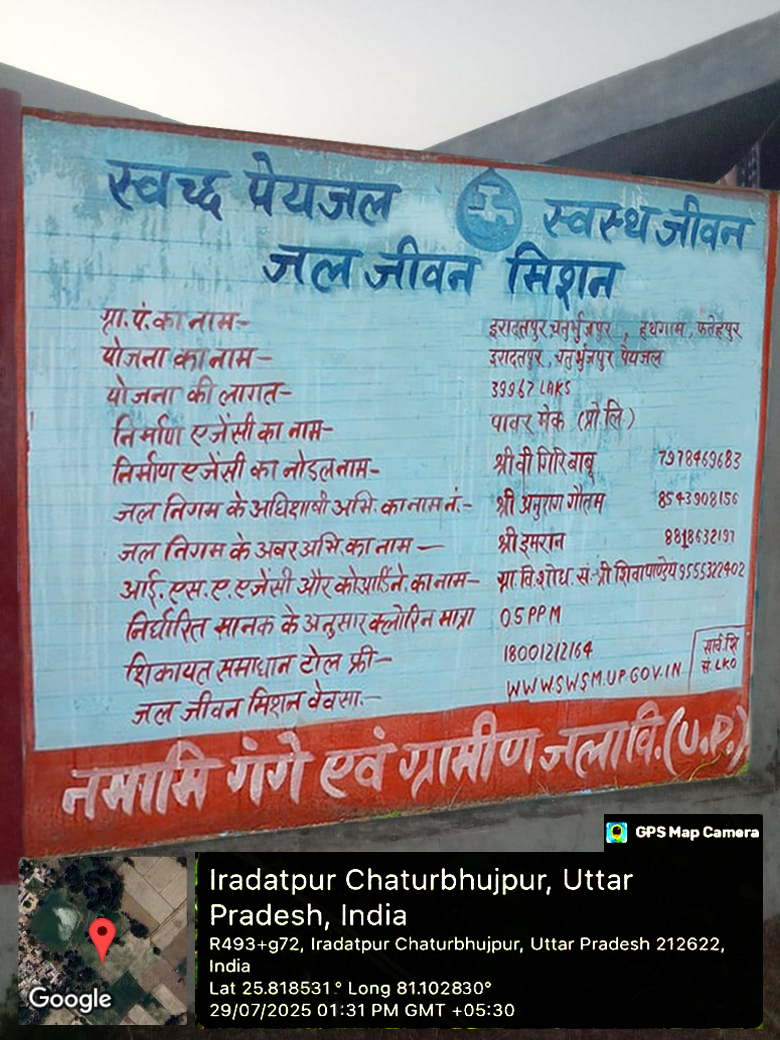 स्वच्छ पेयजल स्वस्थ जीवन
जल जीवन मिशन
ग्रा.पं.का नाम- इरादतपुर चतुर्भुजपुर , हथगाम , फतेहपुर
योजना का नाम- इरादतपुर , चतुर्भुजपुर पेयजल
योजना की लागत- 399.67 LAKS
निर्माण एजेंसी का नाम- पावर मेक (प्रो.लि.)
निर्माण एजेंसी का नोडल नाम- श्री वी गिरि बाबू 7978469683
जल निगम के अधिशाषी अभि. का नाम नं.- श्री अनुराग गौतम 8543908156
जल निगम के अवर अभि.का नाम – श्री इमरान 8818632197
आई.एस.ए.एजेंसी और कोआर्डिने.का नाम- ग्रा.वि.शोध.सं.-श्री शिवा पाण्डेय 9555322402
निर्धारित मानक के अनुसार क्लोरिन मात्रा 0.5 PPM
शिकायत समाधान टोल फ्री- 18001212164
जल जीवन मिशन वेवसा.- WWW.SWSM.UP.GOV.IN
सार्व.शि
सं. LKO
नमामि गंगे एवं ग्रामीण जला वि.(U.P.)
GPS Map Camera
Iradatpur Chaturbhujpur, Uttar
Pradesh, India
R493+g72, Iradatpur Chaturbhujpur, Uttar Pradesh 212622,
India
Lat 25.818531° Long 81.102830°
29/07/2025 01:31 PM GMT +05:30
Google